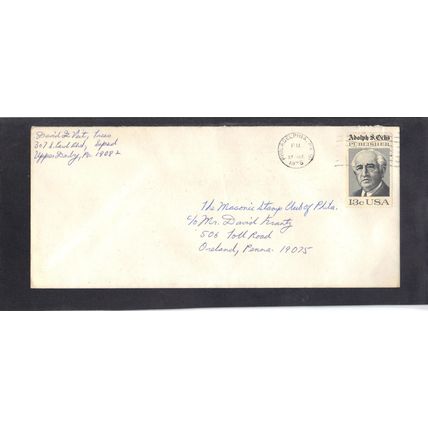 David
Upper Darby, Pa. 19082
PHILADELPHIA, PA
PM
Adolph S. Ochs
PUBLISHER
13c USA
The Masonic Stamp Club of Phila.
c/o Mr. David Krantz
506 Toll Road
Oreland, Penna. 19075